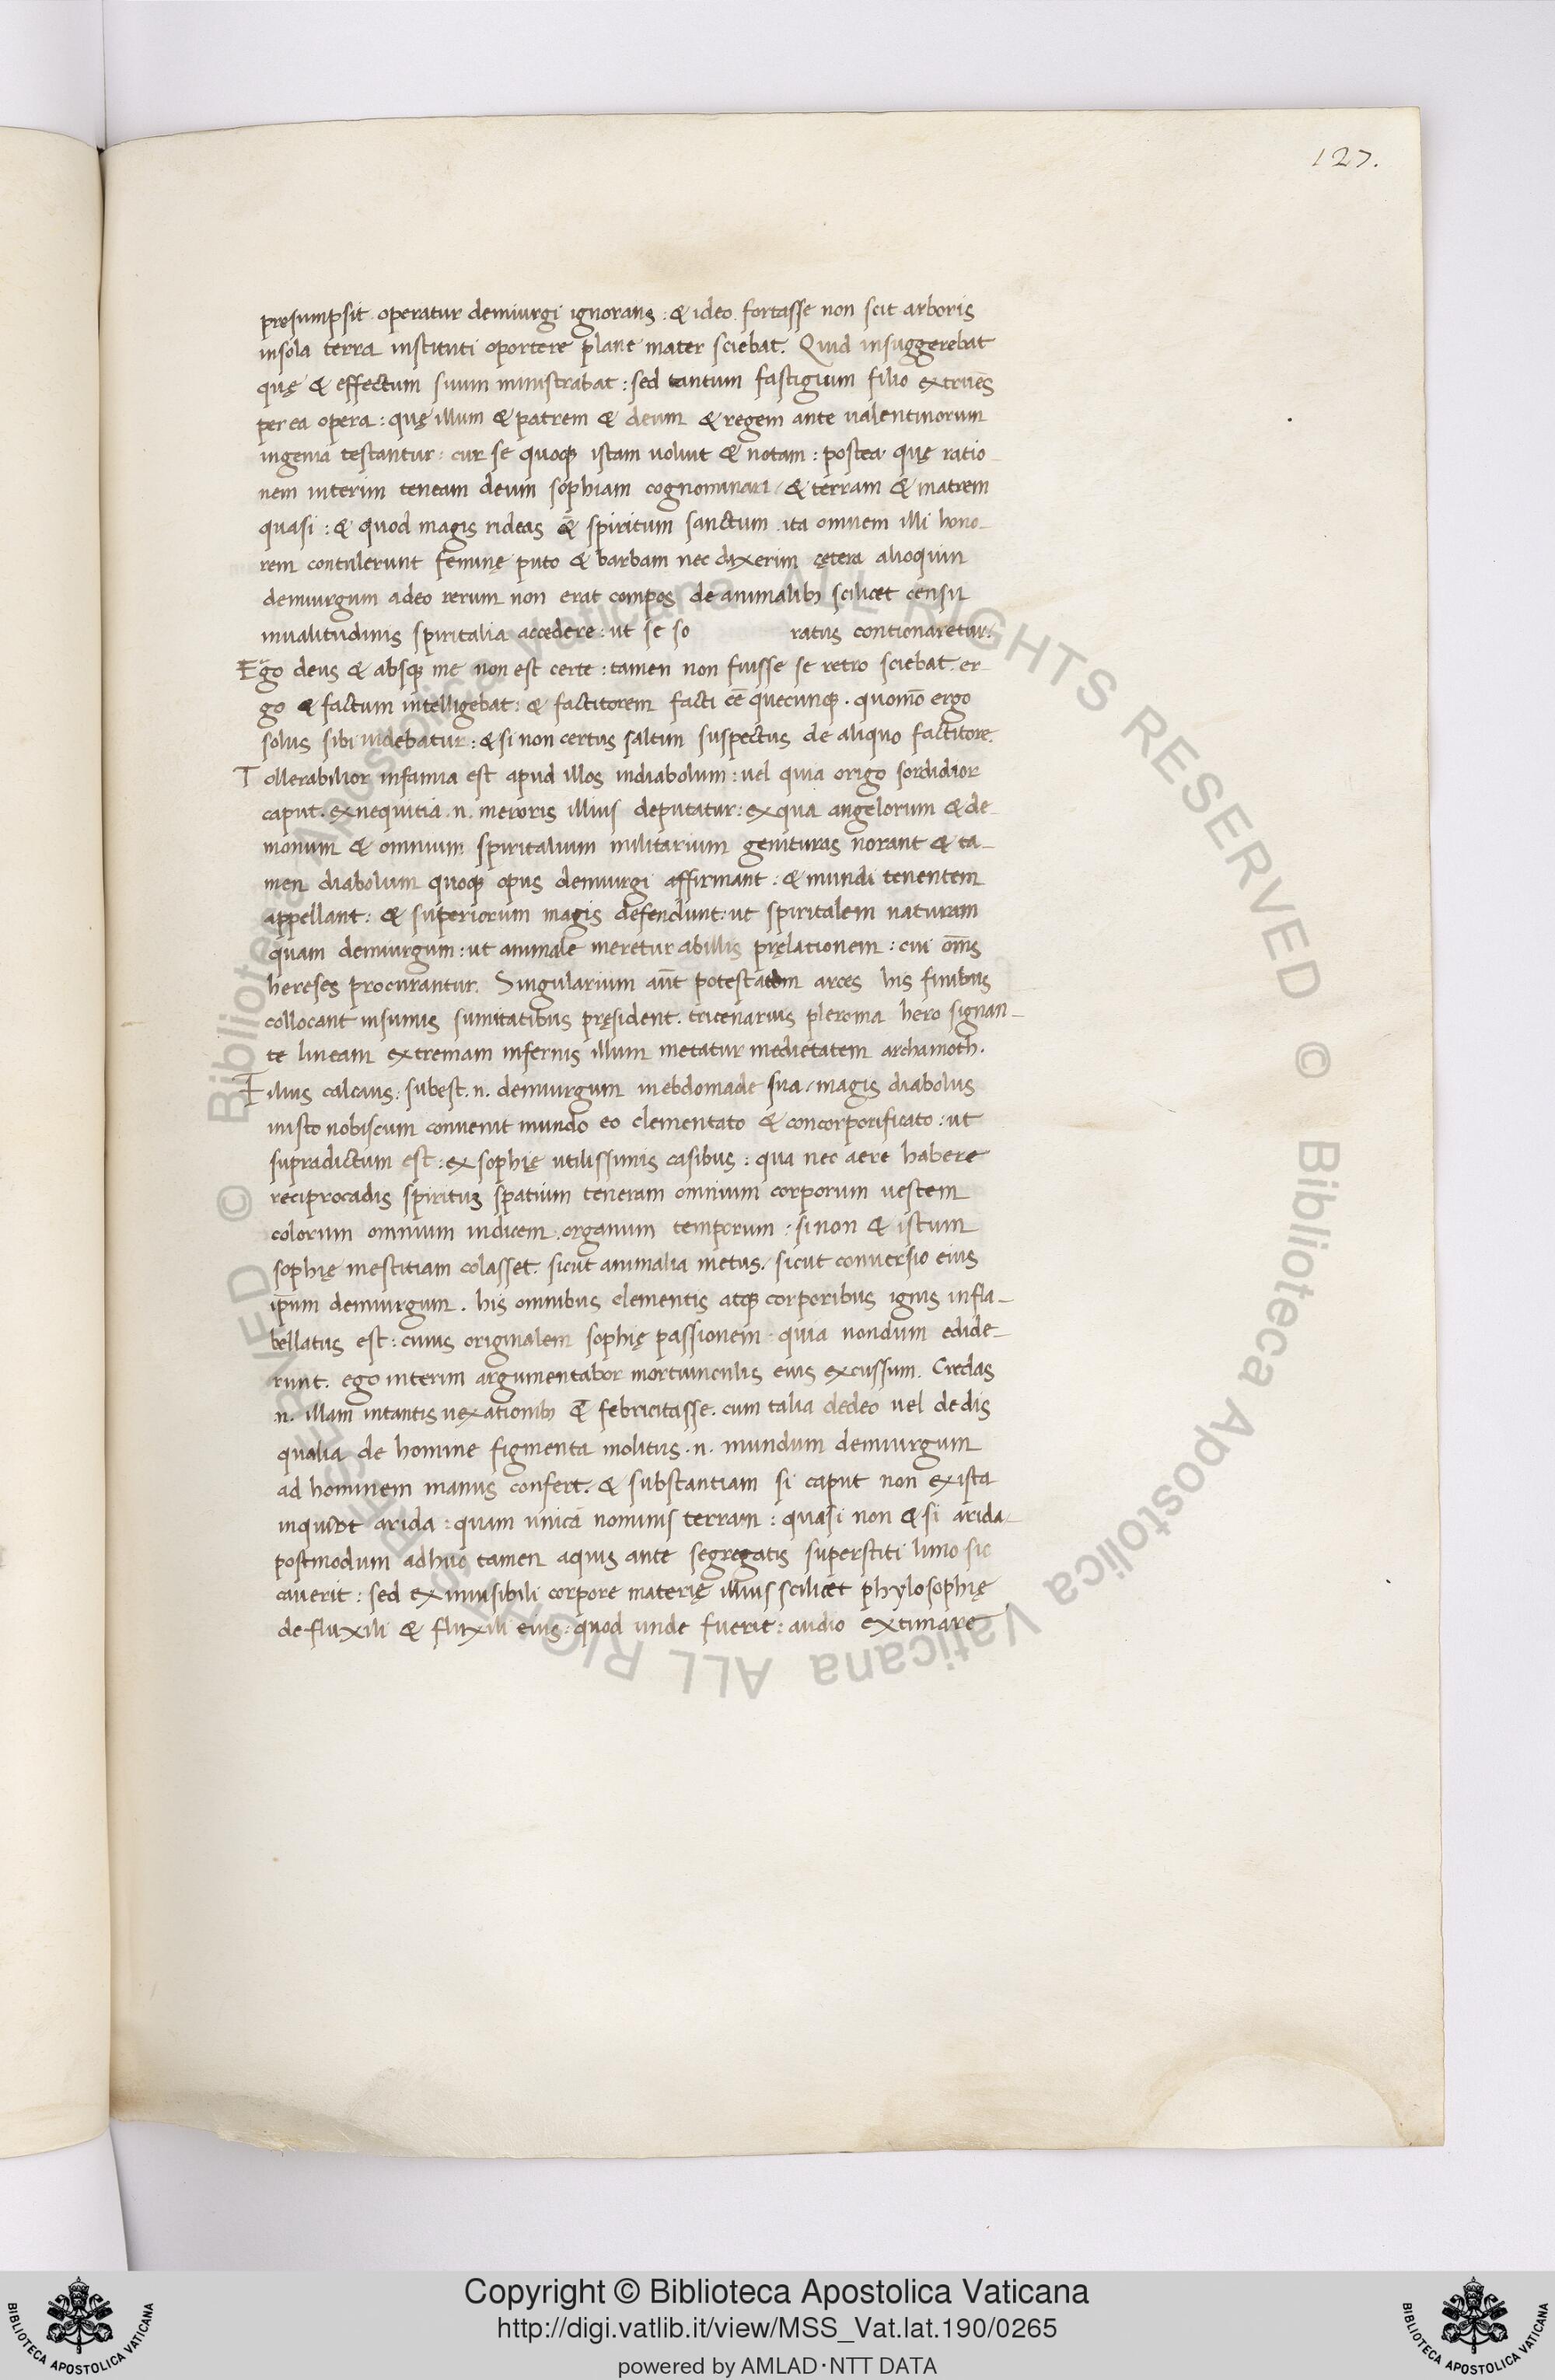 127.
presumpsit operatur demiurgi ignorans : & ideo fortasse non scit arboris
insola terra institui oportere plane mater sciebat. Quid insuggerebat
quę & effectum suum ministrabat : sed tantum fastigium filio extruēs
per ea opera : quę illum & patrem & deum & regem ante ualentinorum
ingenia testantur : cur se quoqꝫ istam uoluit & notam : postea quę ratio-
nem interim teneam deum sophiam cognominari / & terram & matrem
quasi : & quod magis rideas & spiritum sanctum ita omnem illi hono-
rem contulerunt feminę puto & barbam nec dixerim cętera alioquin
demiurgum adeo rerum non erat compos de animalibꝫ scilicet censu
inualitudinis spiritalia accedere : ut se so ratus contionaretur.
Ego deus & absqꝫ me non est certe : tamen non fuisse se retro sciebat er-
go & factum intelligebat : & factitorem facti eē quecunqꝫ. quomō ergo
solus sibi uidebatur : & si non certus saltim suspectus de aliquo factitore.
Tollerabilior infamia est apud illos indiabolum : uel quia origo sordidior
caput. exnequitia .n. meroris illius deputatur : exqua angelorum & de-
monum & omnium spiritalium militarium genituras norant & ta-
men diabolum quoqꝫ opus demiurgi affirmant : & mundi tenentem
appellant : & superiorum magis defendunt : ut spiritalem naturam
quam demiurgum : ut animale meretur abillis pręlationem : cui om̄s
hereses procurantur. Singularium aūt potestatem arces his finibus
collocant insumis sumitatibus pręsident. tricenarius pleroma hero signan-
te lineam extremam infernis illum metatur medietatem archamoth.
Filius calcans : subest .n. demiurgum inebdomade sua / magis diabolus
inisto nobiscum conuenit mundo eo elementato & concorporificato : ut
supradictum est : ex sophię utilissimis casibus : qua nec aere habere
reciprocadis spiritus spatium teneram omnium corporum uestem
colorum omnium indicem organum temporum : si non & istum
sophię mestitiam colasset. sicut animalia metus. sicut conuersio eius
ip̄um demiurgum. his omnibus elementis atqꝫ corporibus ignis infla-
bellatus est : cuius originalem sophię passionem quia nondum edide-
runt. ego interim argumentabor mortiunculis eius excussum. Credas
.n. illam intantis uexationibꝫ & febricitasse. cum talia dedeo uel de dis
qualia de homine figmenta molitus .n. mundum demiurgum
ad hominem manus confert. & substantiam si caput non exista
inquiet arida : quam unicā nominis terram : quasi non & si arida
postmodum adhuc tamen aquis ante segregatis superstiti limo sic
cauerit : sed ex inuisibili corpore materię illius scilicet phylosophię
de fluxili & fluxili eius : quod unde fuerit : audio extimare
Copyright © Biblioteca Apostolica Vaticana
http://digi.vatlib.it/view/MSS_Vat.lat.190/0265
powered by AMLAD·NTT DATA
BIBLIOTECA APOSTOLICA VATICANA
BIBLIOTECA APOSTOLICA VATICANA
© Biblioteca Apostolica Vaticana ALL RIGHTS RESERVED © Biblioteca Apostolica Vaticana ALL RIGHTS RESERVED